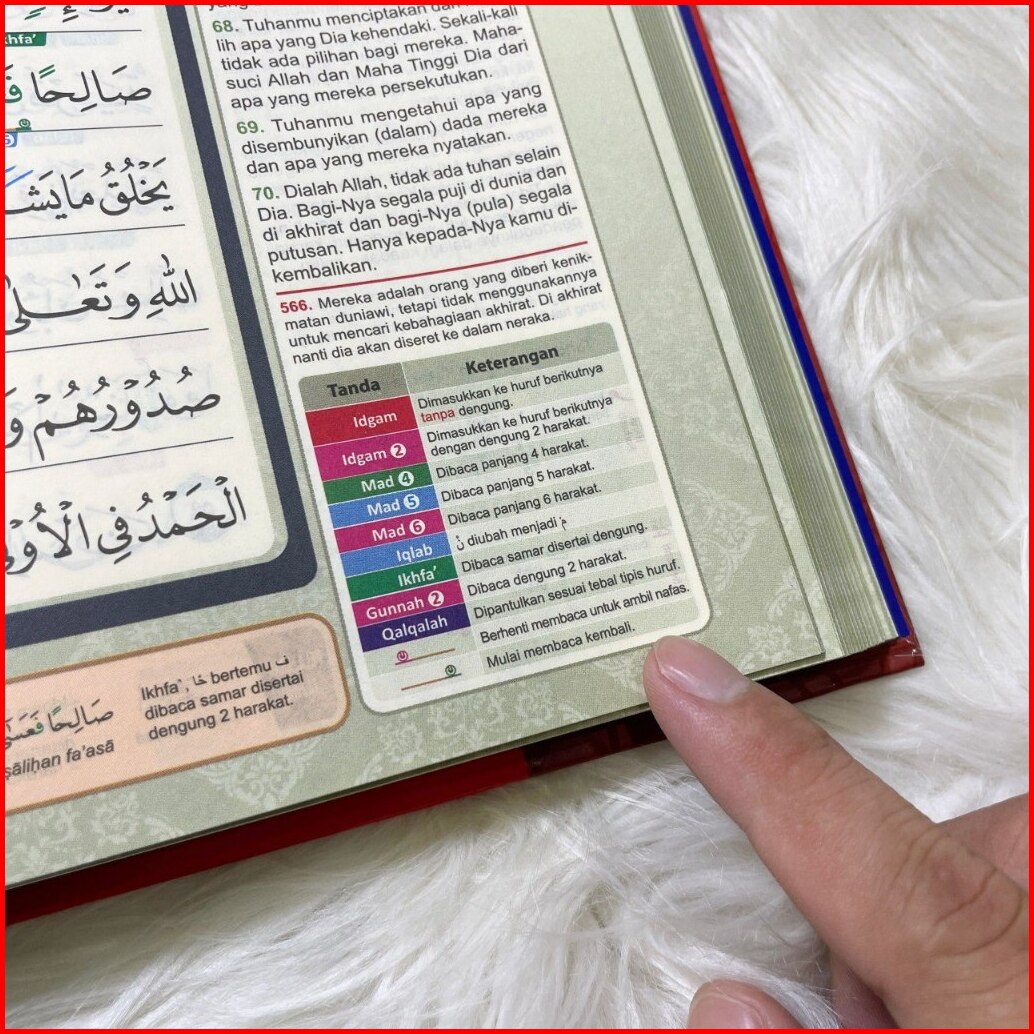 khfa'
صَالِحًا
يَخْلُقُ مَا يَشَ
اللّٰهِ وَتَعٰلٰى
صُدُوْرُهُمْ وَ
الْحَمْدُ فِى الْاُوْلٰى
68. Tuhanmu menciptakan dan
lih apa yang Dia kehendaki. Sekali-kali
tidak ada pilihan bagi mereka. Maha-
suci Allah dan Maha Tinggi Dia dari
apa yang mereka persekutukan.
69. Tuhanmu mengetahui apa yang
disembunyikan (dalam) dada mereka
dan apa yang mereka nyatakan.
70. Dialah Allah, tidak ada tuhan selain
Dia. Bagi-Nya segala puji di dunia dan
di akhirat dan bagi-Nya (pula) segala
putusan. Hanya kepada-Nya kamu di-
kembalikan.
566. Mereka adalah orang yang diberi kenik-
matan duniawi, tetapi tidak menggunakannya
untuk mencari kebahagiaan akhirat. Di akhirat
nanti dia akan diseret ke dalam neraka.
Tanda Keterangan
Idgam Dimasukkan ke huruf berikutnya
tanpa dengung.
Idgam 2 Dimasukkan ke huruf berikutnya
dengan dengung 2 harakat.
Mad 4 Dibaca panjang 4 harakat.
Mad 5 Dibaca panjang 5 harakat.
Mad 6 Dibaca panjang 6 harakat.
Iqlab نْ diubah menjadi م
Ikhfa' Dibaca samar disertai dengung.
Gunnah 2 Dibaca dengung 2 harakat.
Qalqalah Dipantulkan sesuai tebal tipis huruf.
Berhenti membaca untuk ambil nafas.
Mulai membaca kembali.
صَالِحًا فَعَسٰٓى
ṣāliḥan fa'asā
Ikhfa', حًا bertemu ف
dibaca samar disertai
dengung 2 harakat.